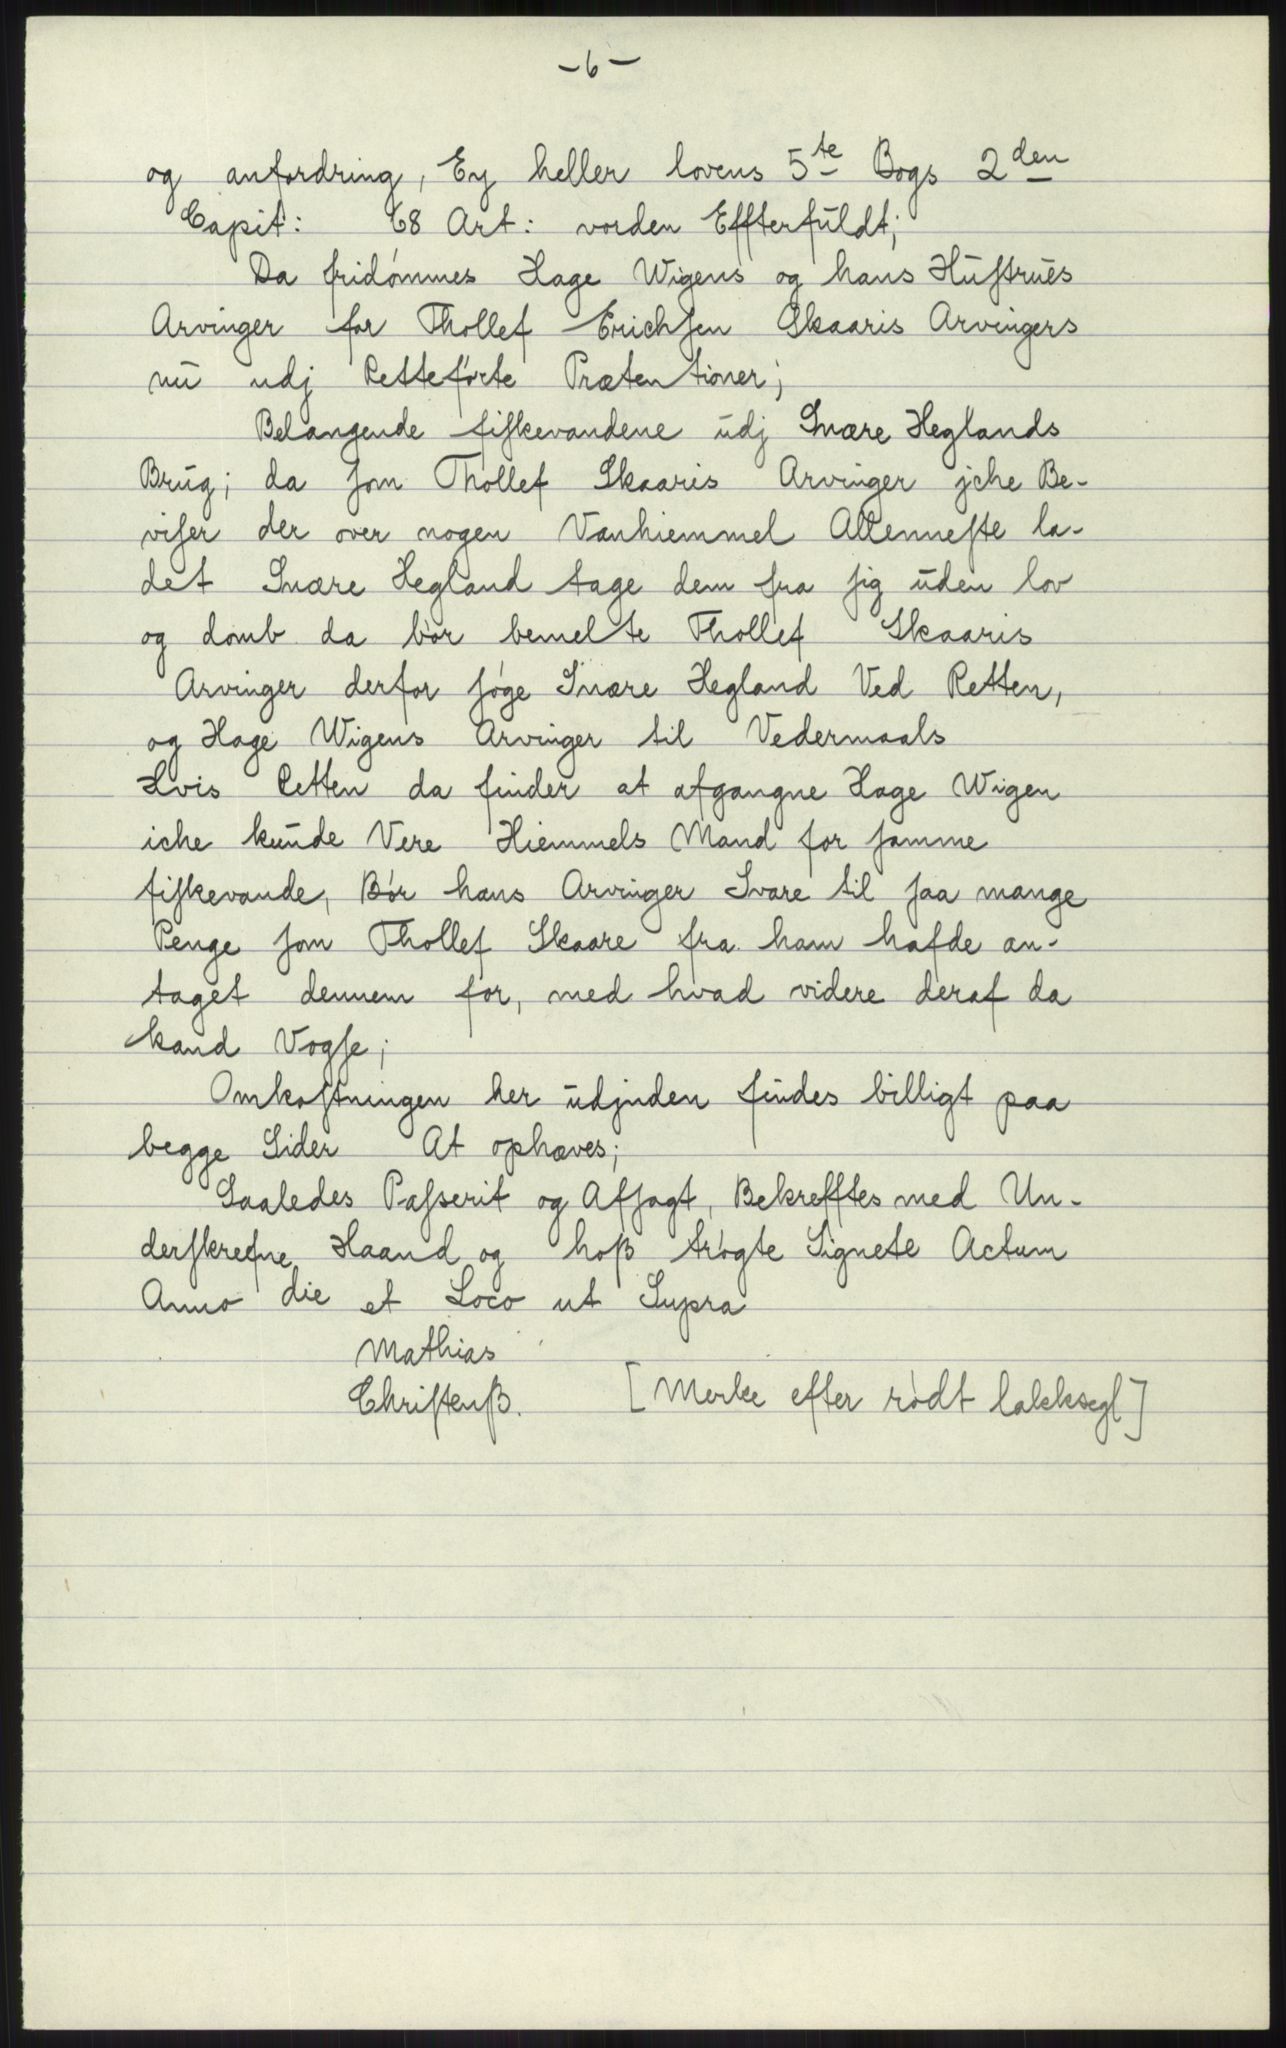 -6-
og anfordring, Ey heller lovens 5te Bogs 2den
Capit: 68 Art: vorden Effterfuldt;
Da fridømmes Hage Wigens og hans Hustrues
Arvinger for Thollef Erichsen Skaaris Arvingers
nu udj Retteførte Prætentioner;
Belangende fiskevandene udj Snære Heglands
Brug; da som Thollef Skaaris Arvinger jche Be-
viser der over nogen Vanhiemmel Alleneste la-
det Snære Hegland tage dem fra sig uden lov
og domb da bør bemelte Thollef Skaaris
Arvinger derfor søge Snære Hegland Ved Retten,
og Hage Wigens Arvinger til Vedermaals
Hvis Retten da finder at afgangne Hage Wigen
iche kunde Vere Hiemmels Mand for samme
fiskevande, Bør hans Arvinger Svare til saa mange
Penge som Thollef Skaare fra ham hafde an-
taget dennem for, med hvad videre deraf da
kand Vogse;
Omkostningen her udjnden findes billigt paa
begge Sider At ophæves;
Saaledes Passerit og Afsagt, Bekrefftes med Un-
derskrefne Haand og hoß trøgte Signete Actum
Anno die et Loco ut Supra
Mathias
Christenß. [Merke efter rødt lakksegl]